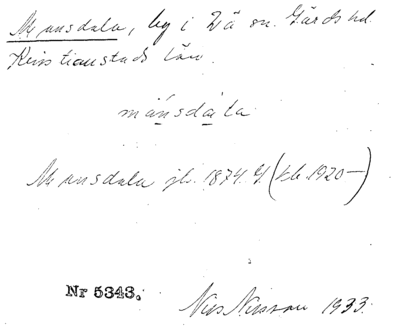 Mansdala, by i Vä sn. Gärds hd.
Kristianstads län.
mánsdala
Mansdala jb. 1874. 4. (kb. 1920—)
Nr 5343.
Nils Nilsson 1933.